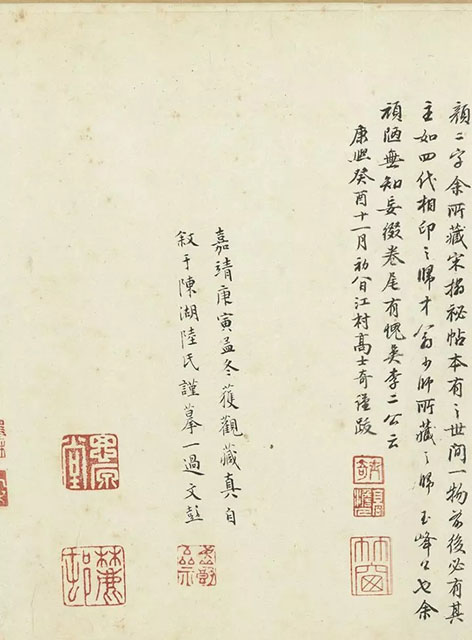 顏二字余所藏宋搨祕帖本有之世間一物前後必有其
主如四代相印之歸才翁少師所藏之歸玉峰公也余
頑陋無知妄綴卷尾有愧吳李二公云
康熙癸酉十一月初八日江村高士奇謹跋
士奇
竹窗
嘉靖庚寅孟冬獲觀藏真自
叙于陳湖陸氏謹摹一過文彭
思原堂
麓邨